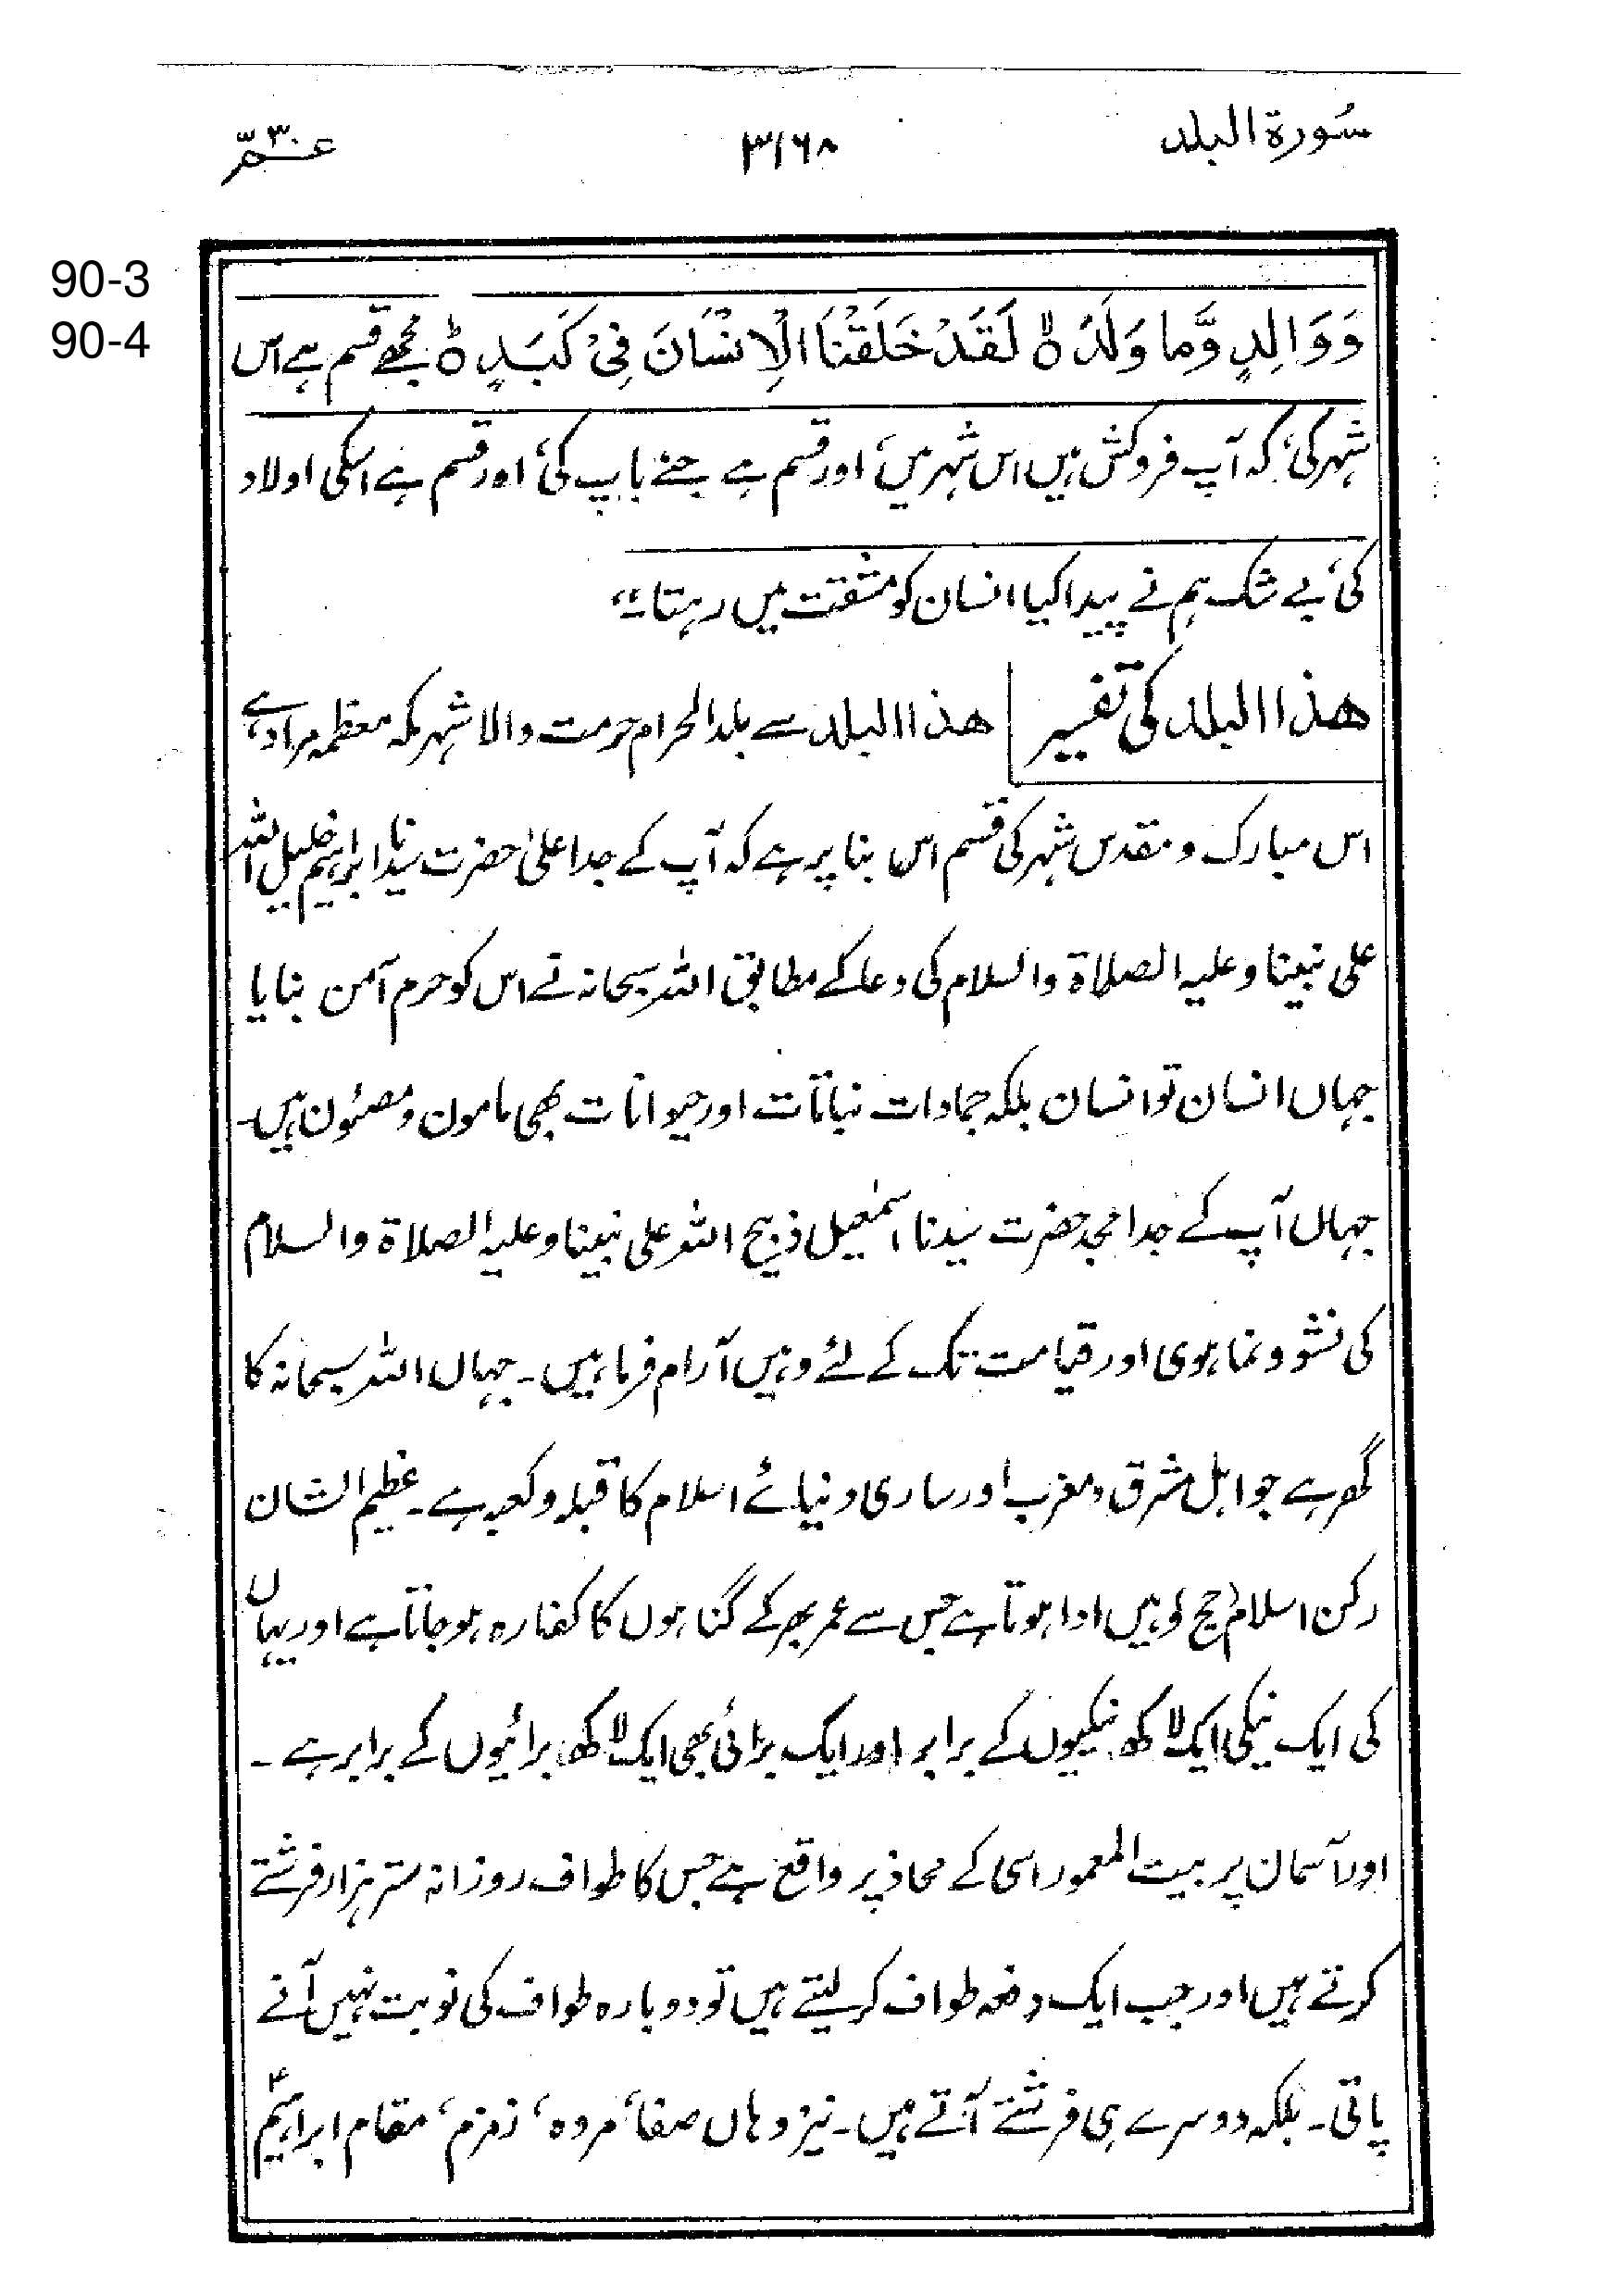 سُورة البلد
۳۱۶۸
عمّ ۳۰
90-3
90-4
وَوَالِدٍ وَّمَا وَلَدَ ۙ۝ لَقَدْ خَلَقْنَا الْاِنْسَانَ فِیْ کَبَدٍ ؕ۝ مجھے قسم ہے اس
شہر کی، کہ آپ فروکش ہیں اس شہر میں، اور قسم ہے جنے باپ کی، اور قسم ہے اسکی اولاد
کی، بے شک ہم نے پیدا کیا انسان کو مشقت میں رہتا۔“
ھذا البلد کی تفسیر
ھذا البلد سے بلد الحرام حرمت والا شہر مکہ معظمہ مراد ہے
اس مبارک و مقدس شہر کی قسم اس بنا پر ہے کہ آپ کے جد اعلیٰ حضرت سیدنا ابراہیم خلیل اللہ
علی نبینا وعلیہ الصلاۃ والسلام کی دعا کے مطابق اللہ سبحانہ نے اس کو حرم آمن بنایا
جہاں انسان تو انسان بلکہ جمادات نباتات اور حیوانات بھی مامون و مصئون ہیں۔
جہاں آپ کے جد امجد حضرت سیدنا اسمٰعیل ذبیح اللہ علی نبینا وعلیہ الصلاۃ والسلام
کی نشو و نما ہوی اور قیامت تک کے لئے وہیں آرام فرما ہیں۔ جہاں اللہ سبحانہ کا
گھر ہے جو اہل مشرق و مغرب اور ساری دنیائے اسلام کا قبلہ و کعبہ ہے۔ عظیم الشان
رکن اسلام حج وہیں ادا ہوتا ہے جس سے عمر بھر کے گناہوں کا کفارہ ہو جاتا ہے اور یہاں
کی ایک نیکی ایک لاکھ نیکیوں کے برابر اور ایک برائی بھی ایک لاکھ برائیوں کے برابر ہے۔
اور آسمان پر بیت المعمور اسی کے محاذ پر واقع ہے جس کا طواف روزانہ ستر ہزار فرشتے
کرتے ہیں اور جب ایک دفعہ طواف کر لیتے ہیں تو دوبارہ طواف کی نوبت نہیں آنے
پاتی۔ بلکہ دوسرے ہی فرشتے آتے ہیں۔ نیز وہاں صفا، مروہ، زمزم، مقام ابراہیمؑ